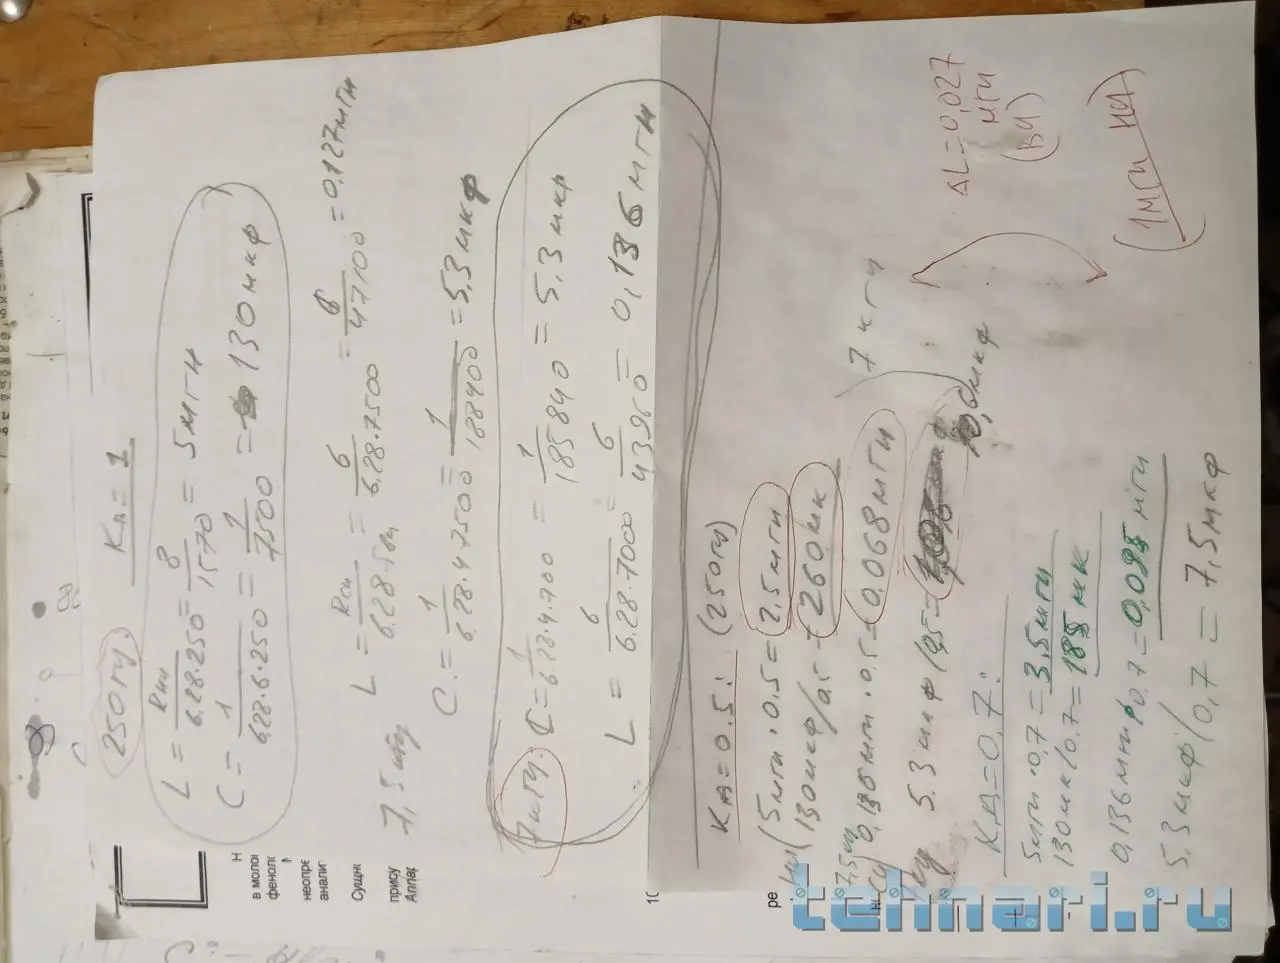 250 гц.
Кд = 1
L = Rнч/6.28·250 = 8/1570 = 5 мГн
C = 1/6,28·6·250 = 1/7500 = 130 мкф
7,5 кгц
L = Rсч/6.28·7500 = 6/6.28·7500 = 6/47100 = 0.127 мГн
C = 1/6.28·4.7500 = 1/188400 = 5,3 мкф
7 кгц.
C = 1/6.28·4.700 = 1/185840 = 5.3 мкр
L = 6/6.28·7000 = 6/43960 = 0,136 мГн
Кд = 0.5: (250 гц)
5 мгн · 0.5 = 2,5 мгн
130 мкф/0.5 = 260 мк
7,5 гц 0,136 мгн · 0.5 = 0,068 мГн
7 кгц
5.3 мкф/0,5 = 10,6 мкф
Кд = 0,7:
5 мгн · 0,7 = 3,5 мгн
130 мк/0.7 = 185 мк
0,136 мгн · 0.7 = 0,095 мгн
5,3 мкф/0,7 = 7,5 мкф
ΔL = 0,027
мгн
(ВЧ)
(1 мГн НЧ)
Н
в молоі
фенолі
неопре
аналит
Сущнс
прису
Аппар
10
ре
tehnari.ru